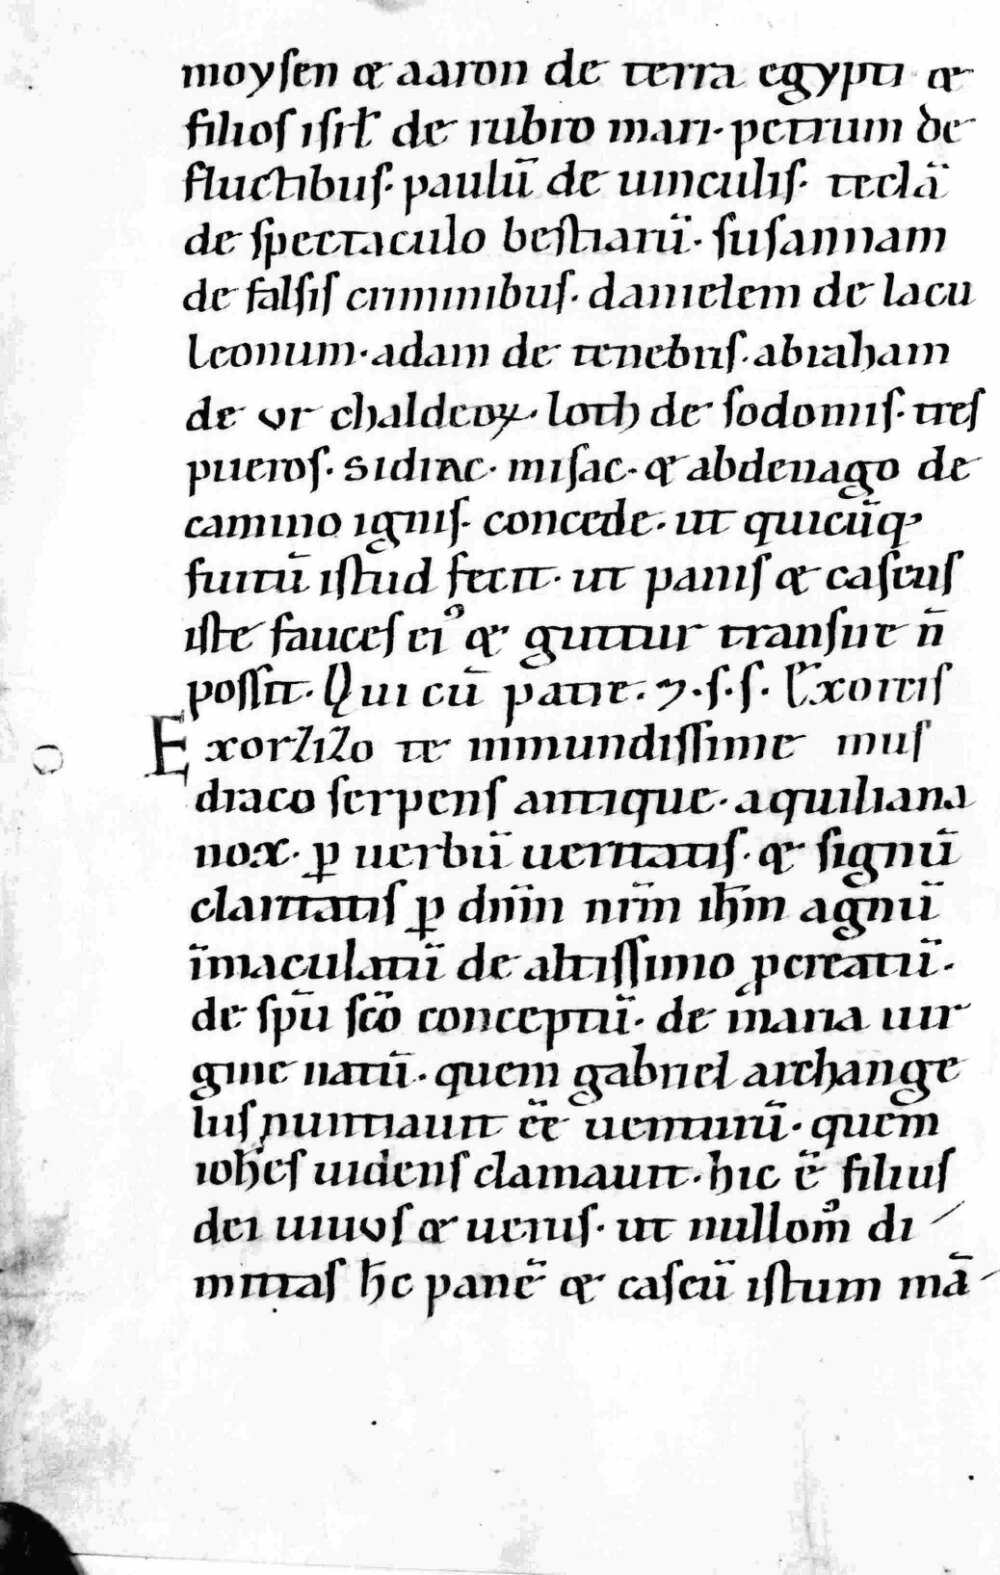 moysen & aaron de terra egypti &
filios isrł de rubro mari· petrum de
fluctibus· paulū de uinculis· teclā
de spectaculo bestiarū· susannam
de falsis criminibus· danielem de lacu
leonum· adam de tenebris· abraham
de ur chaldeoꝝ· loth de sodomis· tres
pueros· sidrac· misac· & abdenago de
camino ignis· concede· ut quicūq;
furtū istud fecit· ut panis & caseus
iste fauces ei᾽ & guttur transire n̄
possit· Qui cū patre· ⁊· s· s· Exorcis
Exorzizo te inmundissime mus
draco serpens antique· aquiliana
nox· ꝑ uerbū ueritatis· & signū
claritatis ꝑ dn̄m nr̄m ih̄m agnū
īmaculatū de altissimo ꝓcreatū·
de spū sc̄o conceptū· de maria uir
gine natū· quem gabriel archange
lus nuntiauit ēē uenturū· quem
ioh̄es uidens clamauit· hic ē filius
dei uiuus & uerus· ut nullom̊ di
mittas h̄c panē & caseū istum mā